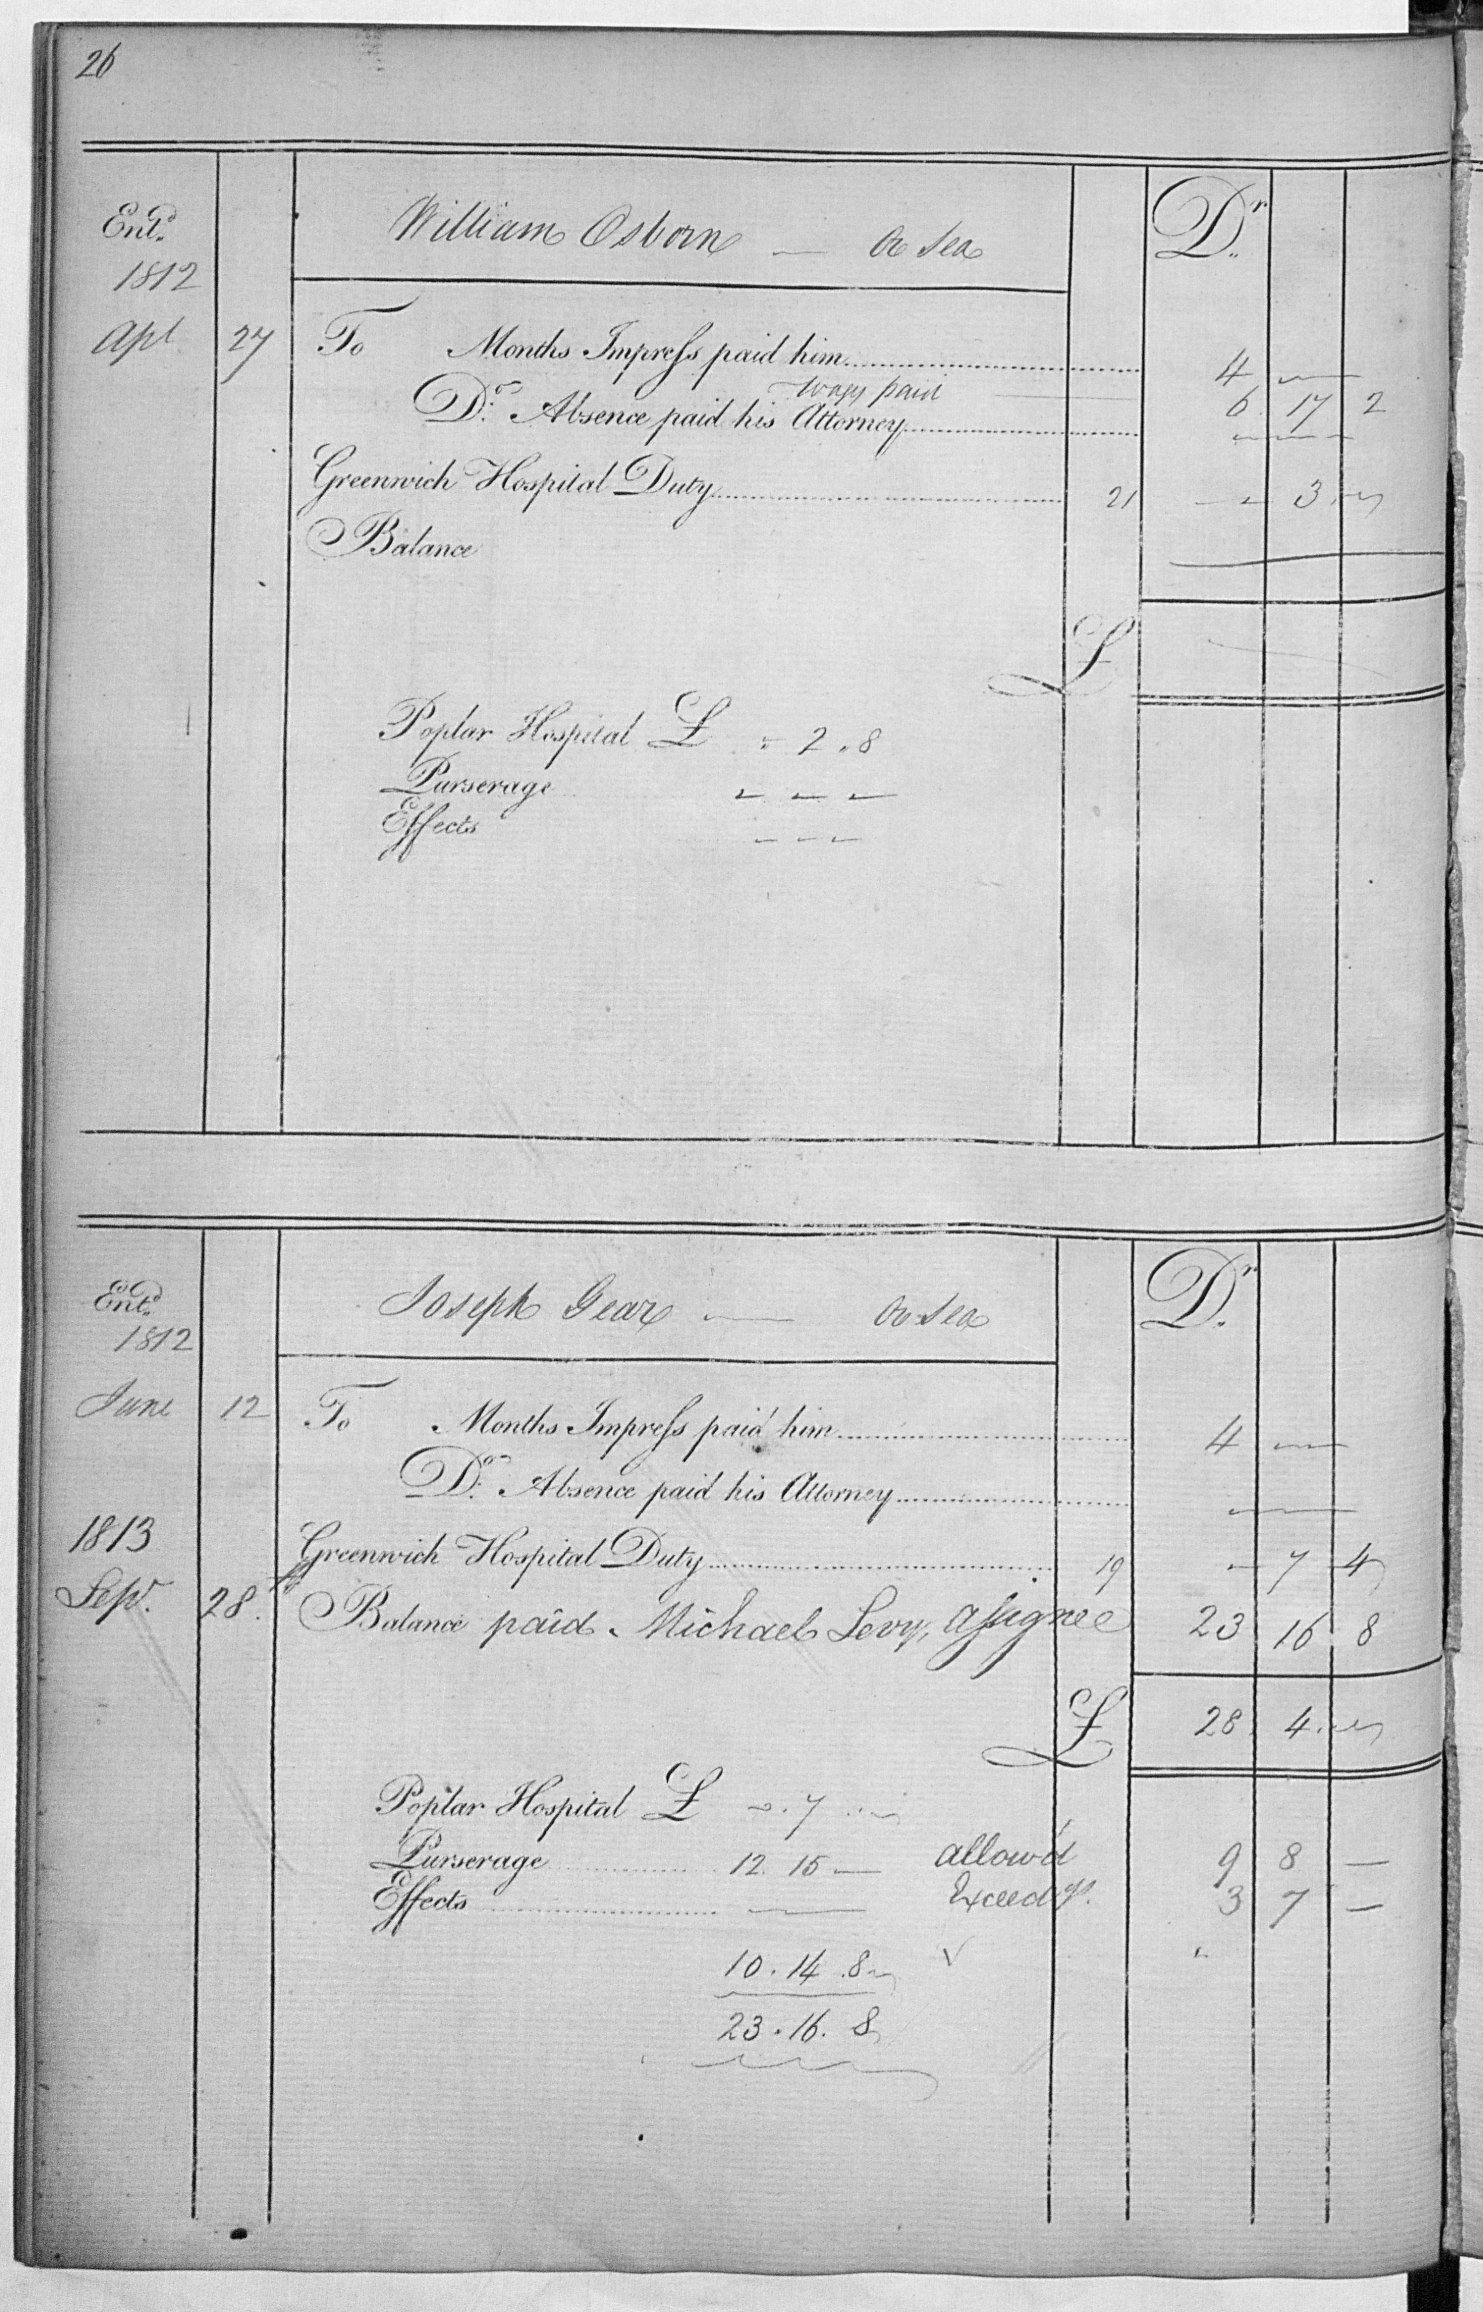 26
Ent.d
1812
William Osborn — Or Sea
D.r
Apl 27 To Months Impress paid him 4 —
Wages paid 6 17 2
D.o Absence paid his Attorney — — —
Greenwich Hospital Duty 21 — 3 —
Balance
£
Poplar Hospital £ " 2 " 8
Purserage — — —
Effects — — —
Ent.d
1812
Joseph Gear — Or Sea
D.r
June 12 To Months Impress paid him 4 —
D.o Absence paid his Attorney —
1813 Greenwich Hospital Duty 19 — 7 4
Sepr. 28. Balance paid Michael Levy, Assignee 23 16 8
£ 28 4. —
Poplar Hospital £ —. 7 —
Purserage 12. 15 — allow'd 9 8 —
Effects — Exceedgs. 3 7 —
10. 14. 8
23. 16. 8